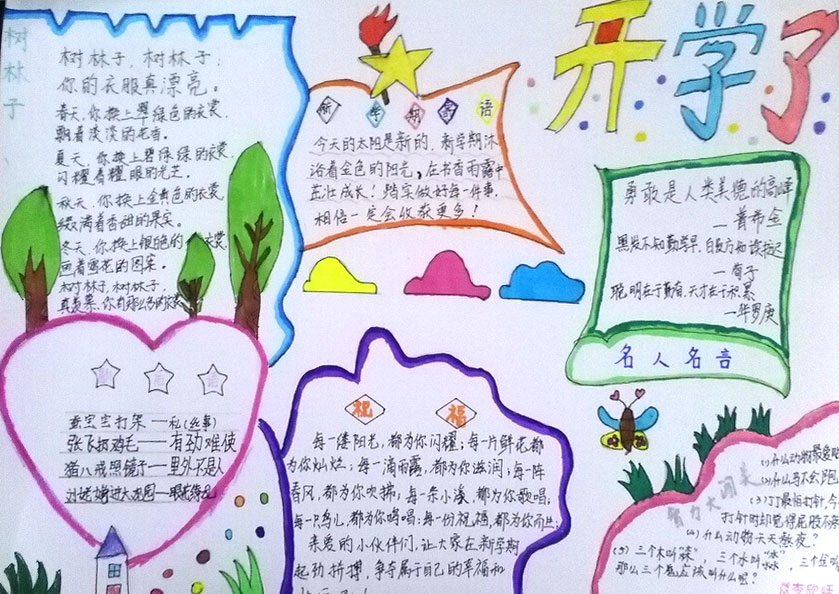 开学了
树林子
树林子，树林子：
你的衣服真漂亮。
春天，你换上翠绿色的衣裳，
飘着淡淡的花香。
夏天，你换上碧绿绿的衣裳，
闪耀着耀眼的光芒。
秋天，你换上金黄色的衣裳
缀满着香甜的果实。
冬天，你换上银色的衣裳
画着雪花的图案。
树林子，树林子，
新学期寄语
今天的太阳是新的，新学期沐
浴着金色的阳光，在书香雨露中
茁壮成长！踏实做好每一件事，
相信一定会收获更多！
勇敢是人类美德的高峰
—普希金
黑发不知勤学早，白首方知读书迟
—荀子
聪明在于勤奋，天才在于积累
—华罗庚
名人名言
蚕宝宝打架—私(丝事)
张飞扔鸡毛——有劲难使
猪八戒照镜子—里外不是人
刘姥姥进大观园—眼花缭乱
祝福
每一缕阳光，都为你闪耀；每一片鲜花都
为你灿烂；每一滴雨露，都为你滋润；每一阵
春风，都为你吹拂；每一条小溪，都为你歌唱；
每一只鸟儿，都为你鸣唱；每一份祝福，都为你而
亲爱的小伙伴们，让大家在新学期
起劲拼搏，争夺属于自己的幸福和
智力大闯关
(1)什么动物最爱
(2)什么马不会跑
(3)丁丁最怕打针，今
打针时却觉得屁股不
(4)什么动物天天熬夜？
(5)三个木叫"森"，三个水叫"淼"，三个
那么三个鬼应该叫什么呢？